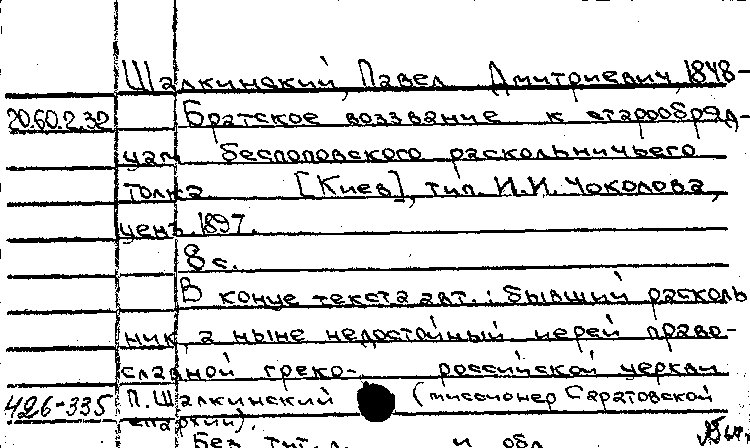 Шалкинский, Павел Дмитриевич, 1848-
20.60.2.32 Братское воззвание к старообряд-
цам беспоповского раскольничьего
толка [Киев], тип. И.И. Чоколова,
ценз. 1897.
8 с.
В конце текста авт.: бывший расколь
ник, а ныне недостойный иерей право-
славной греко- российской церкви
426-335 П. Шалкинский (миссионер Саратовской
епархии).
Без тит. л. и обл